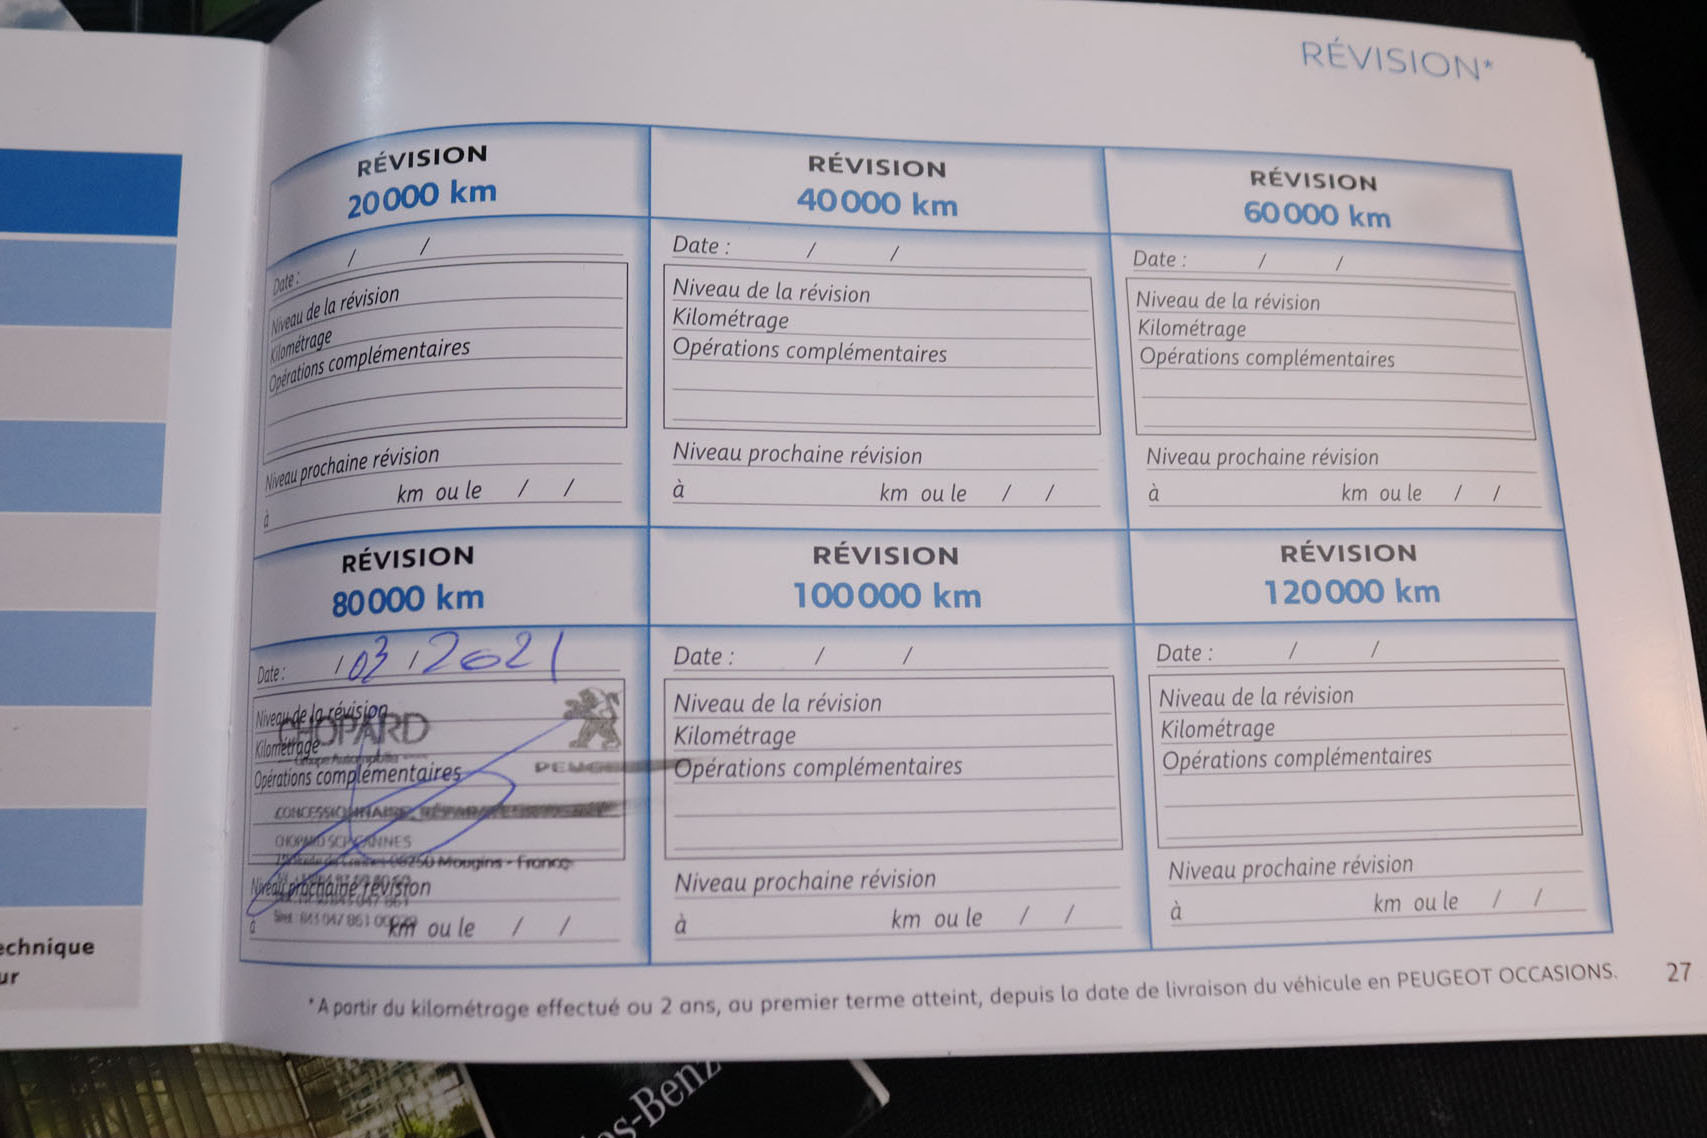 RÉVISION*
RÉVISION
20 000 km
Date : / /
Niveau de la révision
Kilométrage
Opérations complémentaires
Niveau prochaine révision
à km ou le / /
RÉVISION
40 000 km
Date : / /
Niveau de la révision
Kilométrage
Opérations complémentaires
Niveau prochaine révision
à km ou le / /
RÉVISION
60 000 km
Date : / /
Niveau de la révision
Kilométrage
Opérations complémentaires
Niveau prochaine révision
à km ou le / /
RÉVISION
80 000 km
Date : / 03 / 2021
Niveau de la révision
CHOPARD
Kilométrage
Opérations complémentaires
PEUGEOT
CONCESSIONNAIRE
CHOPARD CANNES
06250 Mougins - France
Niveau prochaine révision
à km ou le / /
RÉVISION
100 000 km
Date : / /
Niveau de la révision
Kilométrage
Opérations complémentaires
Niveau prochaine révision
à km ou le / /
RÉVISION
120 000 km
Date : / /
Niveau de la révision
Kilométrage
Opérations complémentaires
Niveau prochaine révision
à km ou le / /
*A partir du kilométrage effectué ou 2 ans, au premier terme atteint, depuis la date de livraison du véhicule en PEUGEOT OCCASIONS.
27
echnique
ur
es-Benz